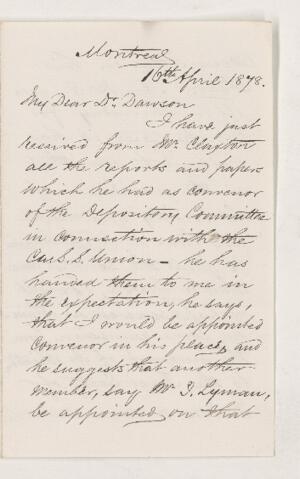 Montreal
16th April 1878.
My Dear Dr. Dawson
I have just
received from Mr. Clayton
all the reports and papers
which he had as convenor
of the Depository Committee
in connection with the
Can. S. S. Union – he has
handed them to me in
the expectation, he says,
that I would be appointed
convenor in his place, and
he suggests that another
member, say Mr. T. Lyman,
be appointed on that